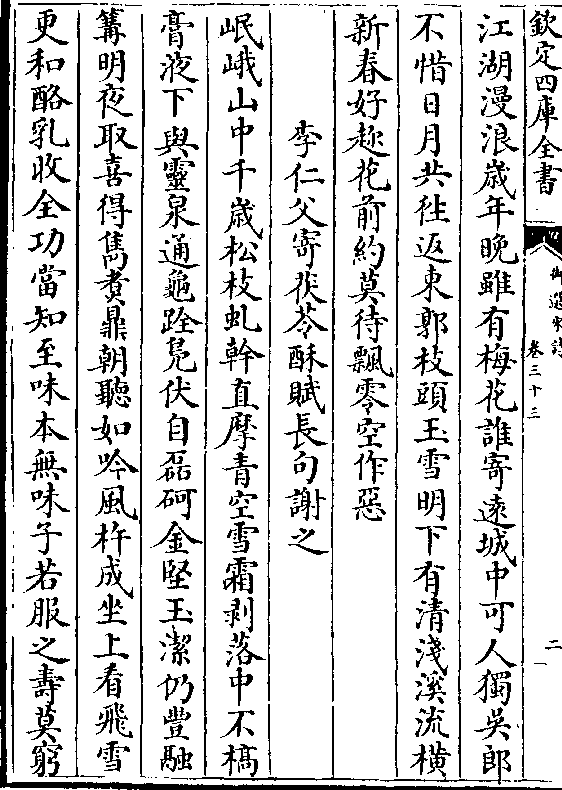 欽定四庫全書
御選宋詩
卷三十三
二
江湖漫浪歲年晚雖有梅花誰寄遠城中可人獨吳郎
不惜日月共徃返東郭枝頭玉雪明下有清淺溪流橫
新春好趁花前約莫待飄零空作惡
李仁父寄茯苓酥賦長句謝之
岷峨山中千歲松枝虬幹直摩青空雪霜剥落中不槁
膏液下與靈泉通龜跧鳧伏自磊砢金堅玉潔仍豐融
篝明夜取喜得雋煑鼎朝聽如吟風杵成坐上看飛雪
更和酪乳收全功當知至味本無味子若服之壽莫窮